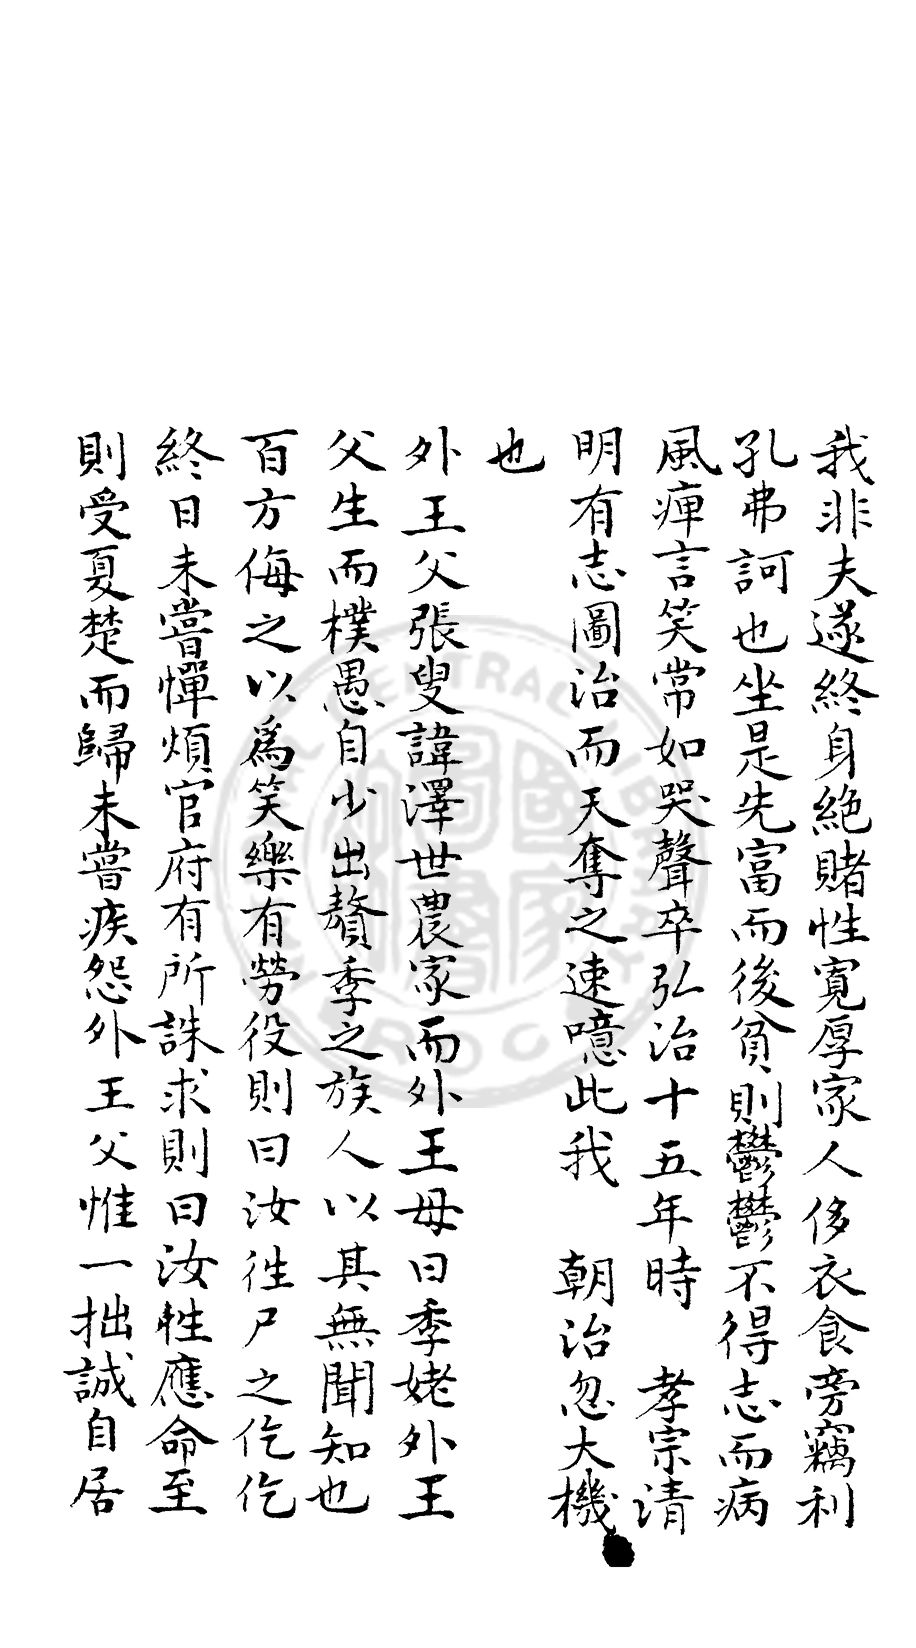 我非夫遂終身絶賭性寛厚家人侈衣食旁竊利
孔弗訶也坐是先富而後貧則鬱鬱不得志而病
風痺言笑常如哭聲卒弘治十五年時　孝宗清
明有志圖治而天奪之速噫此我　朝治忽大機
也
外王父張叟諱澤世農家而外王母曰季姥外王
父生而樸愚自少出贅季之族人以其無聞知也
百方侮之以爲笑樂有勞役則曰汝徃尸之仡仡
終日未嘗憚煩官府有所誅求則曰汝牲應命至
則受夏楚而歸未嘗疾怨外王父惟一拙誠自居
NATIONAL CENTRAL LIBRARY
R.O.C.